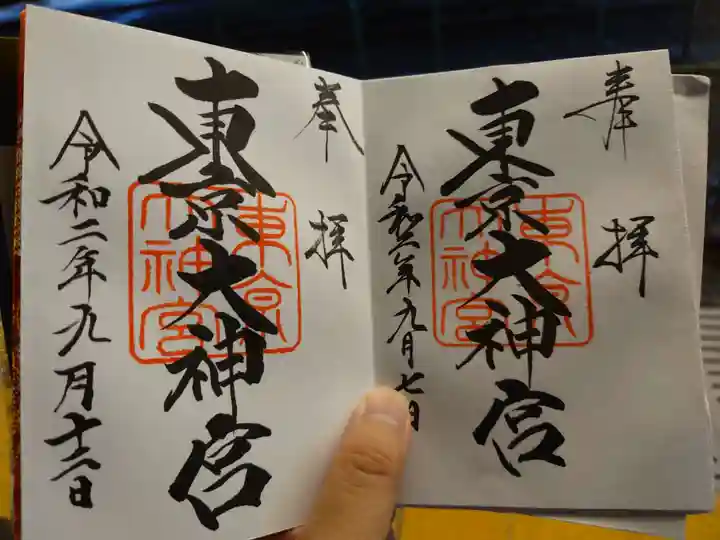 奉拝
東京大神宮
東京大神宮
令和二年九月七日
奉拝
東京大神宮
東京大神宮
令和二年九月十二日